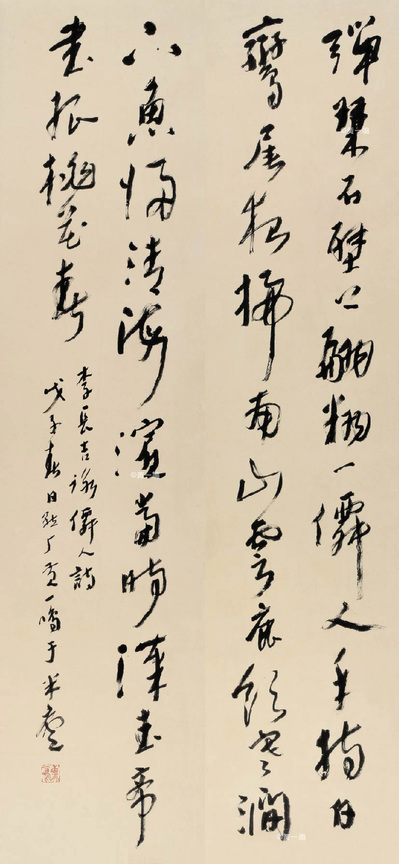 彈琴石壁上翻翻一僊人手持白
鸞尾夜掃南山雲鹿飲寒澗
下魚歸清海濱當時漢武帝
書報桃花春
李長吉詠僊人詩
戊子春日一鳴于米廬